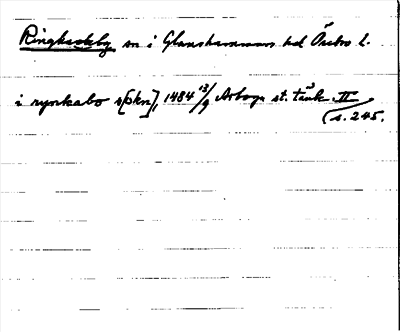 Ringkarleby sn i Glanshammars hd Örebro l.
i rynkabo s[okn], 1484 13/9 Arboga st. tänk. II
s. 245.